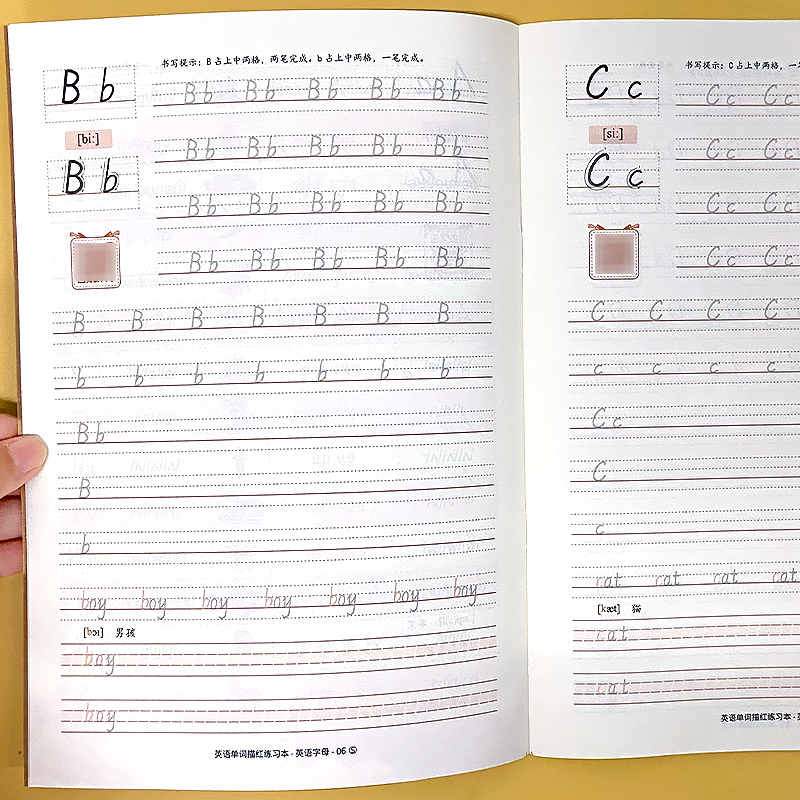 书写提示：B占上中两格，两笔完成。b占上中两格，一笔完成。
B b
Bb Bb Bb Bb Bb
[biː]
Bb Bb Bb Bb Bb
B b
Bb Bb Bb Bb Bb
Bb Bb Bb Bb Bb
B B B B B B B
b b b b b b b
Bb
B
b
boy boy boy boy boy boy boy
[bɔɪ] 男孩
boy
boy
英语单词描红练习本·英语字母·06
书写提示：C占上中两格，一
C c
Cc Cc
[siː]
Cc Cc
C c
Cc Cc
Cc Cc
C C C C
c c c c
Cc
C
c
cat cat cat cat
[kæt] 猫
cat
cat
英语单词描红练习本·